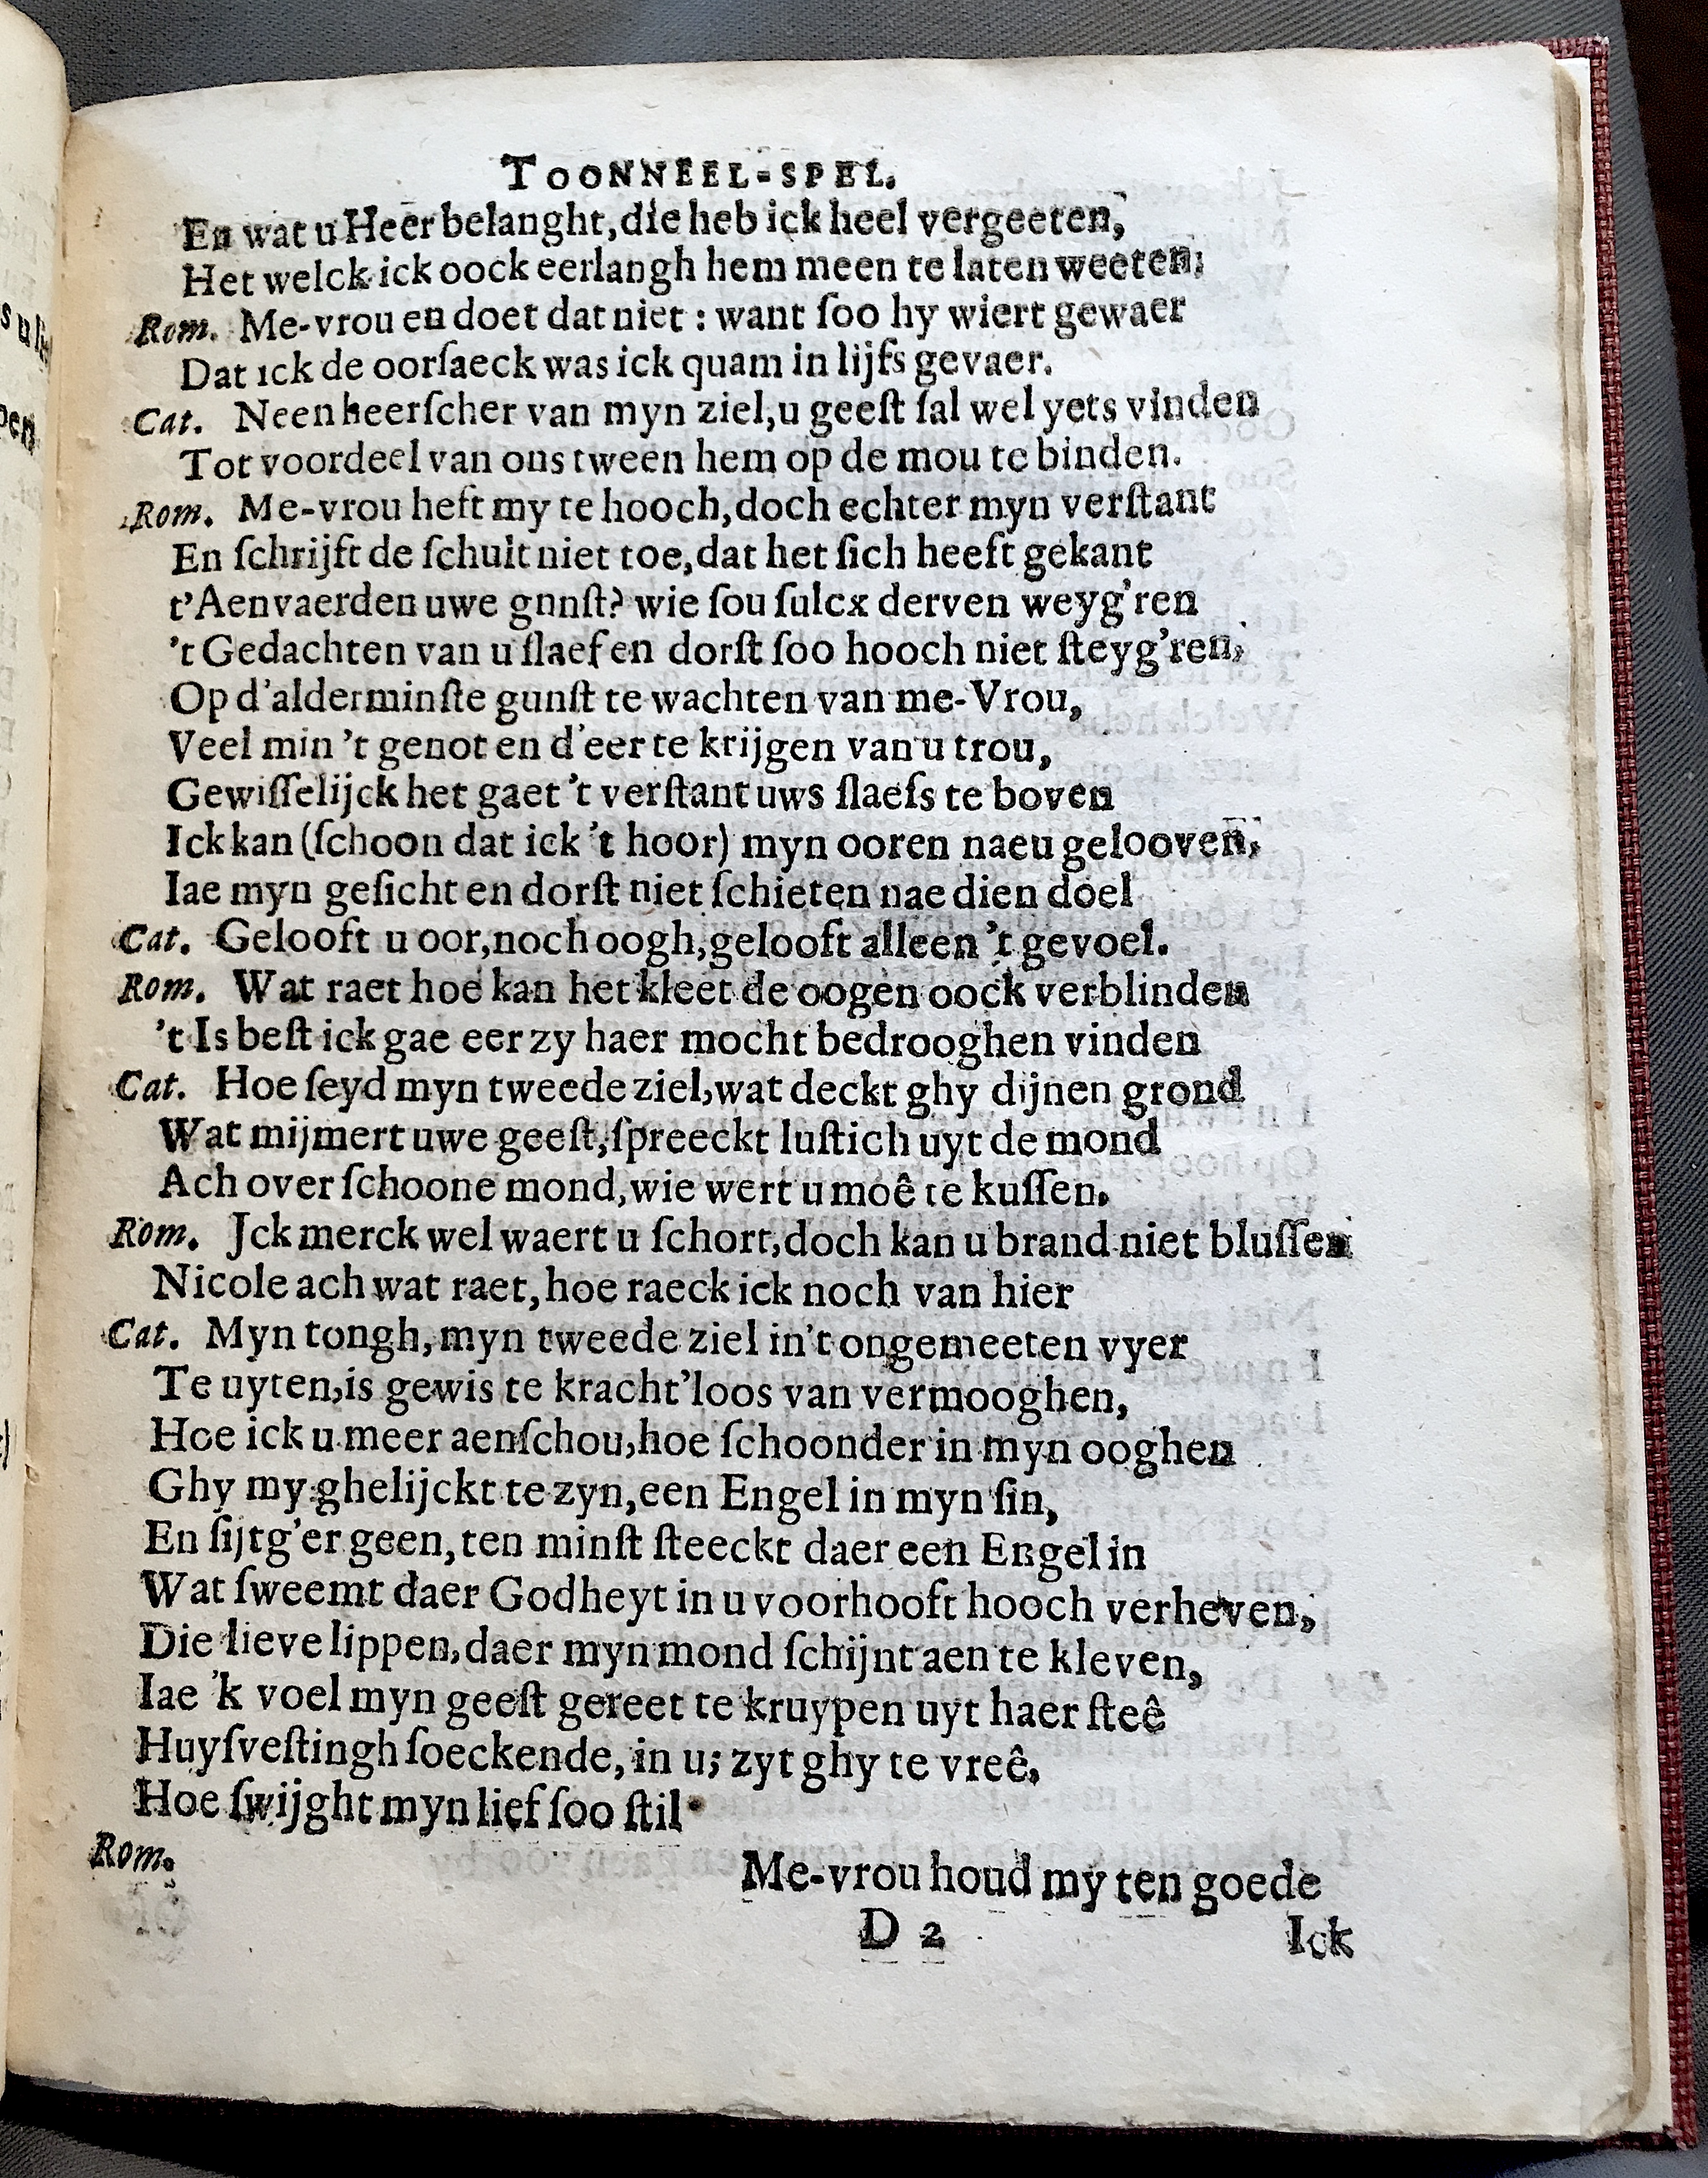 TOONNEEL-SPEL.
En wat u Heer belanght, die heb ick heel vergeeten,
Het welck ick oock eerlangh hem meen te laten weeten;
Rom. Me-vrou en doet dat niet : want ſoo hy wiert gewaer
Dat ıck de oorſaeck was ick quam in lijfs gevaer.
Cat. Neen heerſcher van myn ziel, u geeſt ſal wel yets vinden
Tot voordeel van ons tween hem op de mou te binden.
Rom. Me-vrou heft my te hooch, doch echter myn verſtant
En ſchrijft de ſchult niet toe, dat het ſich heeft gekant
t'Aenvaerden uwe gnnſt? wie ſou ſulcx derven weyg'ren
't Gedachten van u ſlaef en dorſt ſoo hooch niet ſteyg'ren,
Op d'alderminſte gunſt te wachten van me-Vrou,
Veel min 't genot en d'eer te krijgen van u trou,
Gewiſſelijck het gaet 't verſtant uws ſlaefs te boven
Ick kan (ſchoon dat ick 't hoor) myn ooren naeu gelooven,
Iae myn geſicht en dorſt niet ſchieten nae dien doel
Cat. Gelooft u oor, noch oogh, gelooft alleen 't gevoel.
Rom. Wat raet hoe kan het kleet de oogen oock verblinden
't Is beſt ick gae eer zy haer mocht bedrooghen vinden
Cat. Hoe ſeyd myn tweede ziel, wat deckt ghy dijnen grond
Wat mijmert uwe geeſt, ſpreeckt luſtich uyt de mond
Ach over ſchoone mond, wie wert u moê te kuſſen.
Rom. Jck merck wel waert u ſchort, doch kan u brand niet bluſſen
Nicole ach wat raet, hoe raeck ick noch van hier
Cat. Myn tongh, myn tweede ziel in't ongemeeten vyer
Te uyten, is gewis te kracht'loos van vermooghen,
Hoe ick u meer aenſchou, hoe ſchoonder in myn ooghen
Ghy my ghelijckt te zyn, een Engel in myn ſin,
En ſijtg'er geen, ten minſt ſteeckt daer een Engel in
Wat ſweemt daer Godheyt in u voorhooft hooch verheven,
Die lieve lippen, daer myn mond ſchijnt aen te kleven,
Iae 'k voel myn geeſt gereet te kruypen uyt haer ſteê
Huyſveſtingh ſoeckende, in u; zyt ghy te vreê,
Hoe ſwijght myn lief ſoo ſtil.
Rom.
Me-vrou houd my ten goede
D 2
Ick